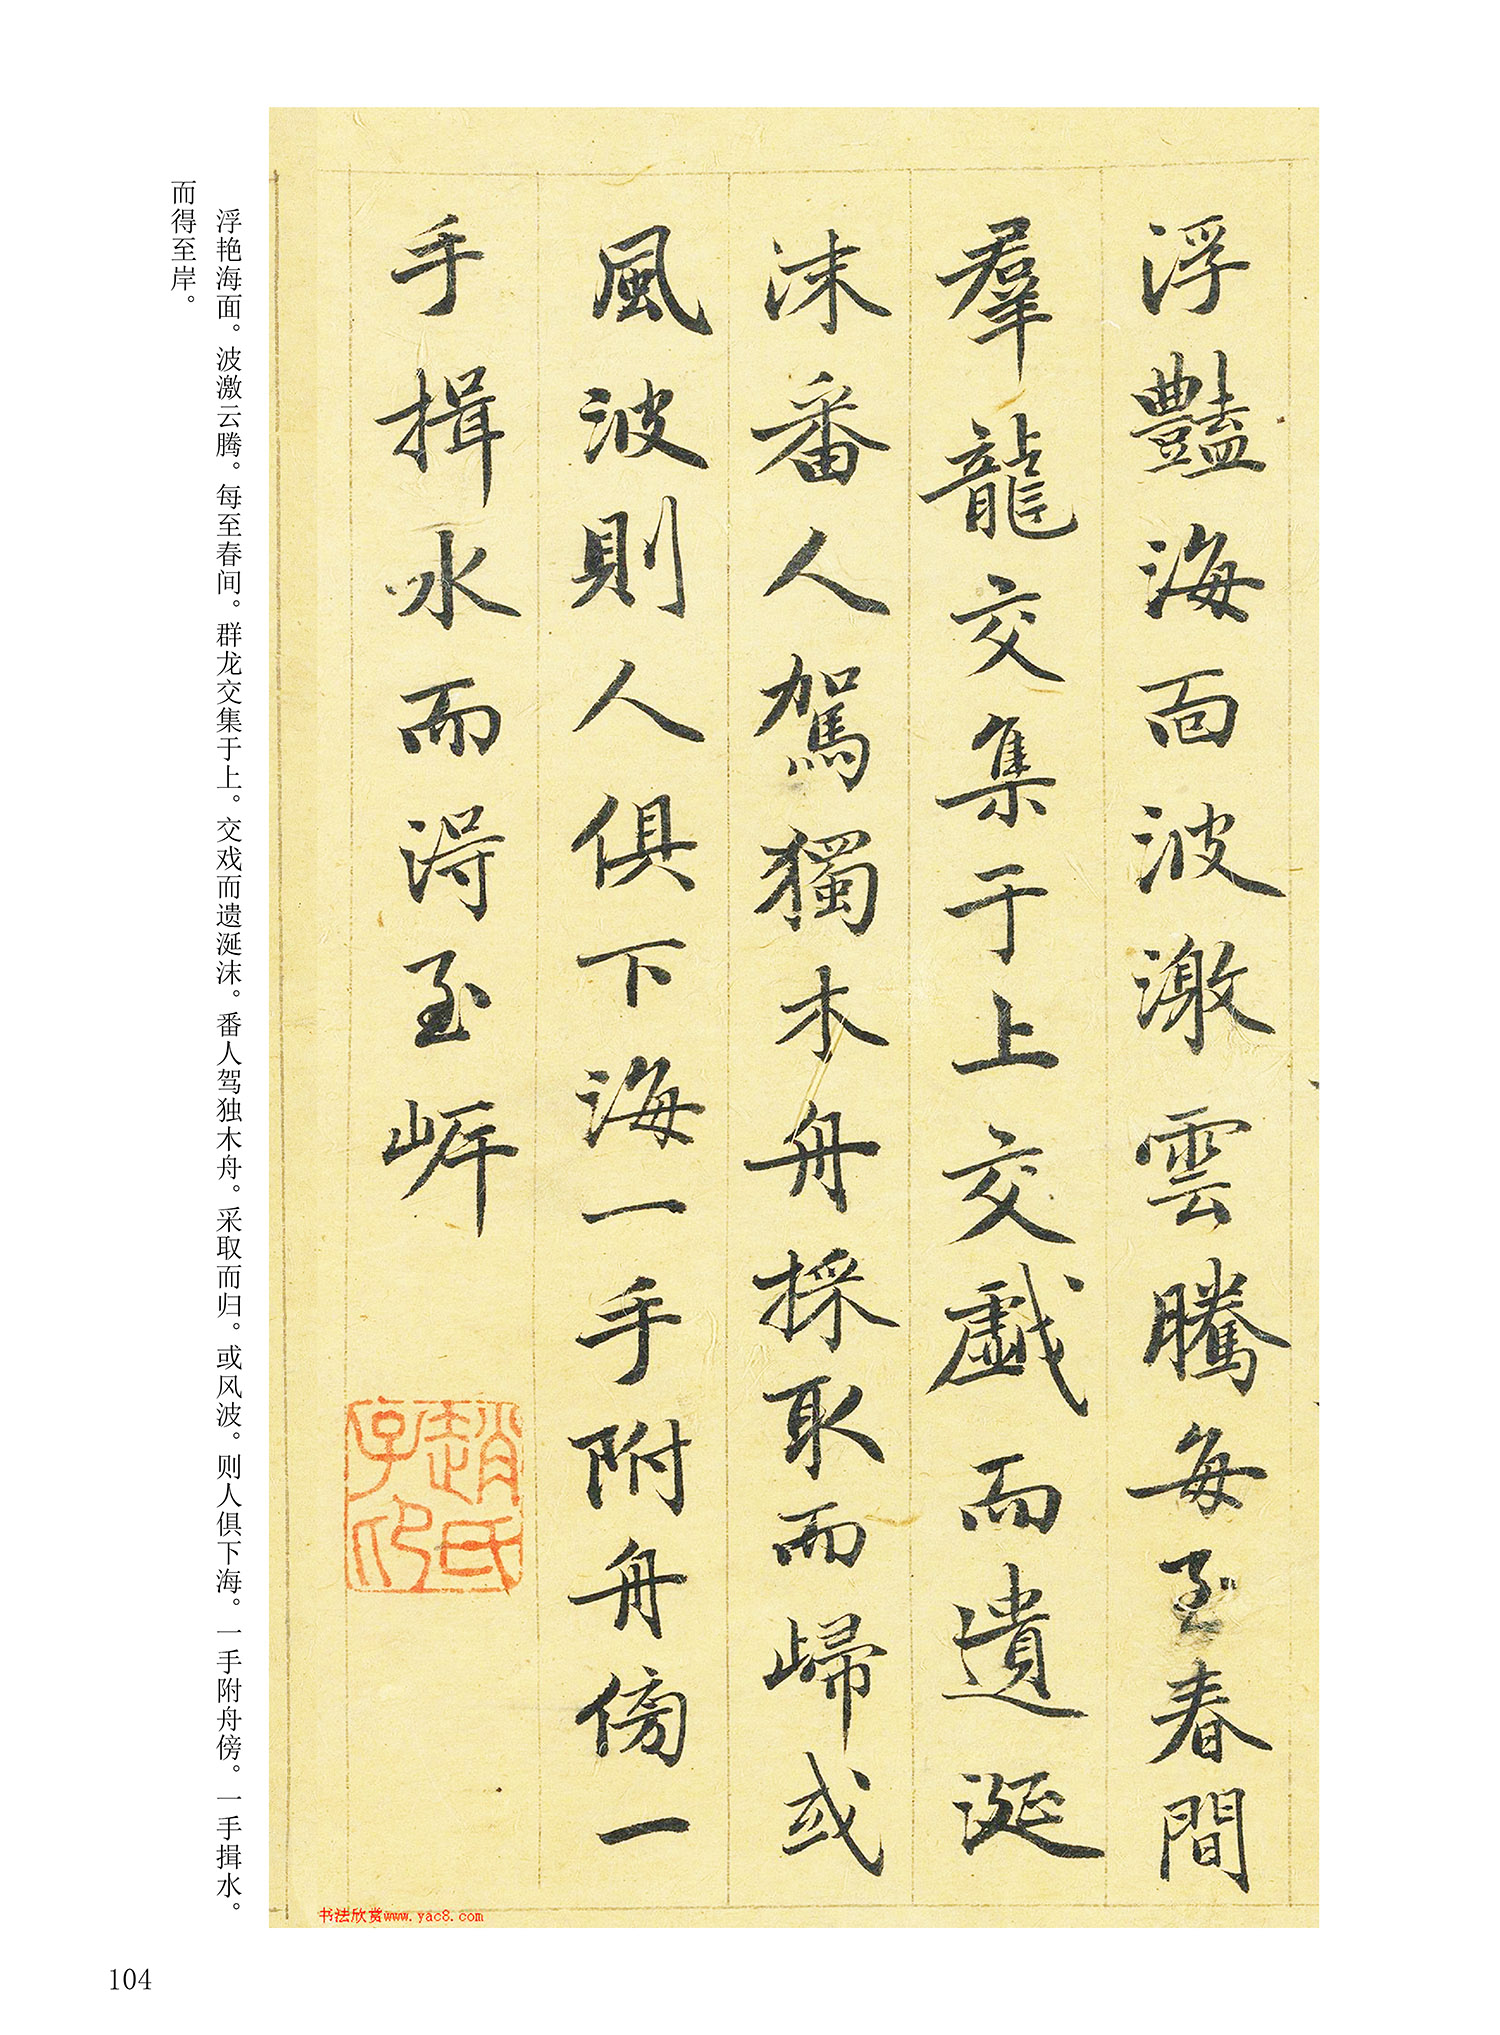 浮豔海面波激雲騰每至春間
羣龍交集于上交戱而遺涎
沫番人駕獨木舟採取而歸或
風波則人俱下海一手附舟傍一
手揖水而得至岸
趙氏
子印
浮艳海面。波激云腾。每至春间。群龙交集于上。交戏而遗涎沫。番人驾独木舟。采取而归。或风波。则人俱下海。一手附舟傍。一手揖水。
而得至岸。
书法欣赏www.yac8.com
104